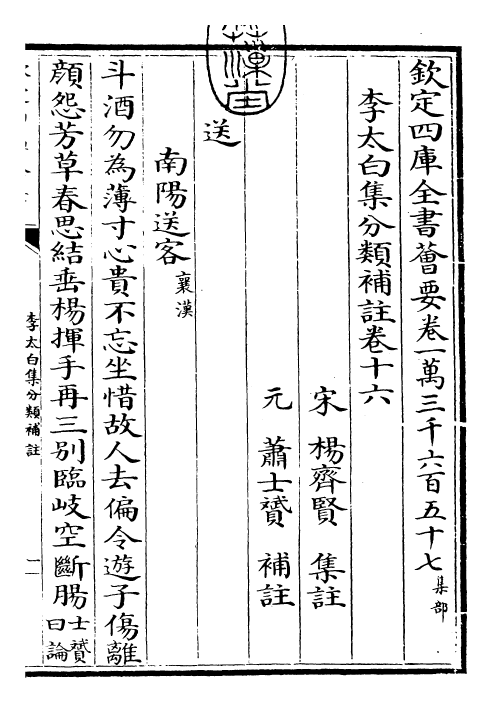 欽定四庫全書薈要卷一萬三千六百五十七 集部
李太白集分類補註卷十六
宋 楊齊賢 集註
元 蕭士贇 補註
送
南陽送客 襄漢
斗酒勿為薄寸心貴不忘坐惜故人去偏令遊子傷離
顔怨芳草春思結垂楊揮手再三别臨岐空斷腸 士贇曰論
李太白集分類補註
一